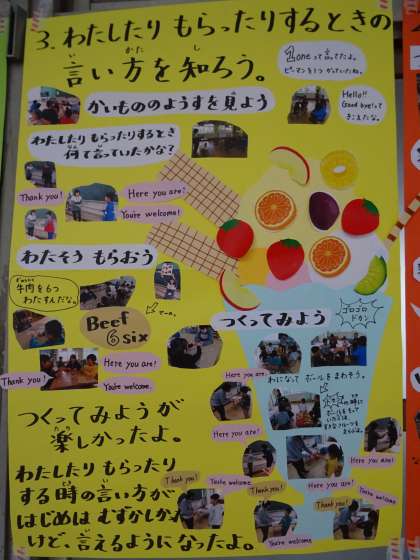 3. わたしたり もらったりするときの
言い方を知ろう。
い かた し
1 oneって言ってたよ。
ピーマンを1つ かっていたね。
かいもののようすを見よう
Hello!!
Good bye!って
きこえたな。
わたしたり もらったりするとき
何て言っていたかな?
Thank you!
Here you are!
You're welcome!
わたそう もらおう
牛肉を6つ
わたすんだな。
Beef
6 six
Thank you!
Here you are!
You're welcome.
つくってみよう
ゴロゴロ
ドカン
わになって ボールをまわそう。
Here you are!
Here you are!
Here you are!
Thank you!
You're welcome
Thank you!
Here you are!
You're welcome
You're welcome.
Thank you!
つくってみようが
楽しかったよ。
たの
わたしたり もらったり
する時の言い方が
はじめは むずかしかった
けど、言えるようになったよ。